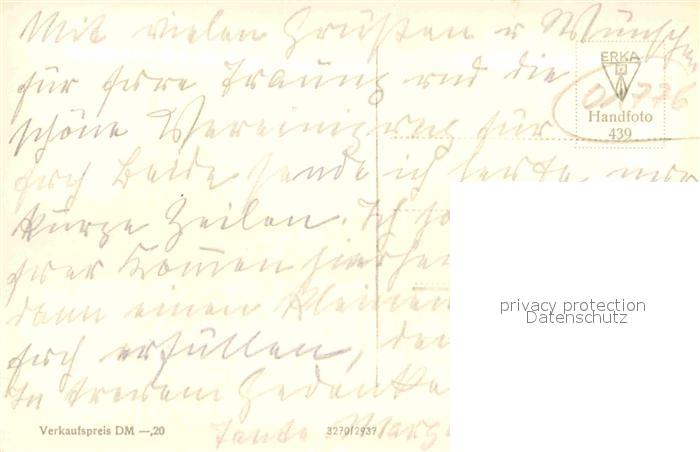 Mit vielen Grüßen u Wünschen
für Eure Trauung und die
schöne Vereinigung für
Euch Beide sende ich heute nur
kurze Zeilen. Ich
Euer Kommen hierher
dann einen kleinen
Euch erfüllen,
In treuem Gedenken
Tante
ERKA
Handfoto
439
privacy protection
Datenschutz
Verkaufspreis DM —,20
3270/2937